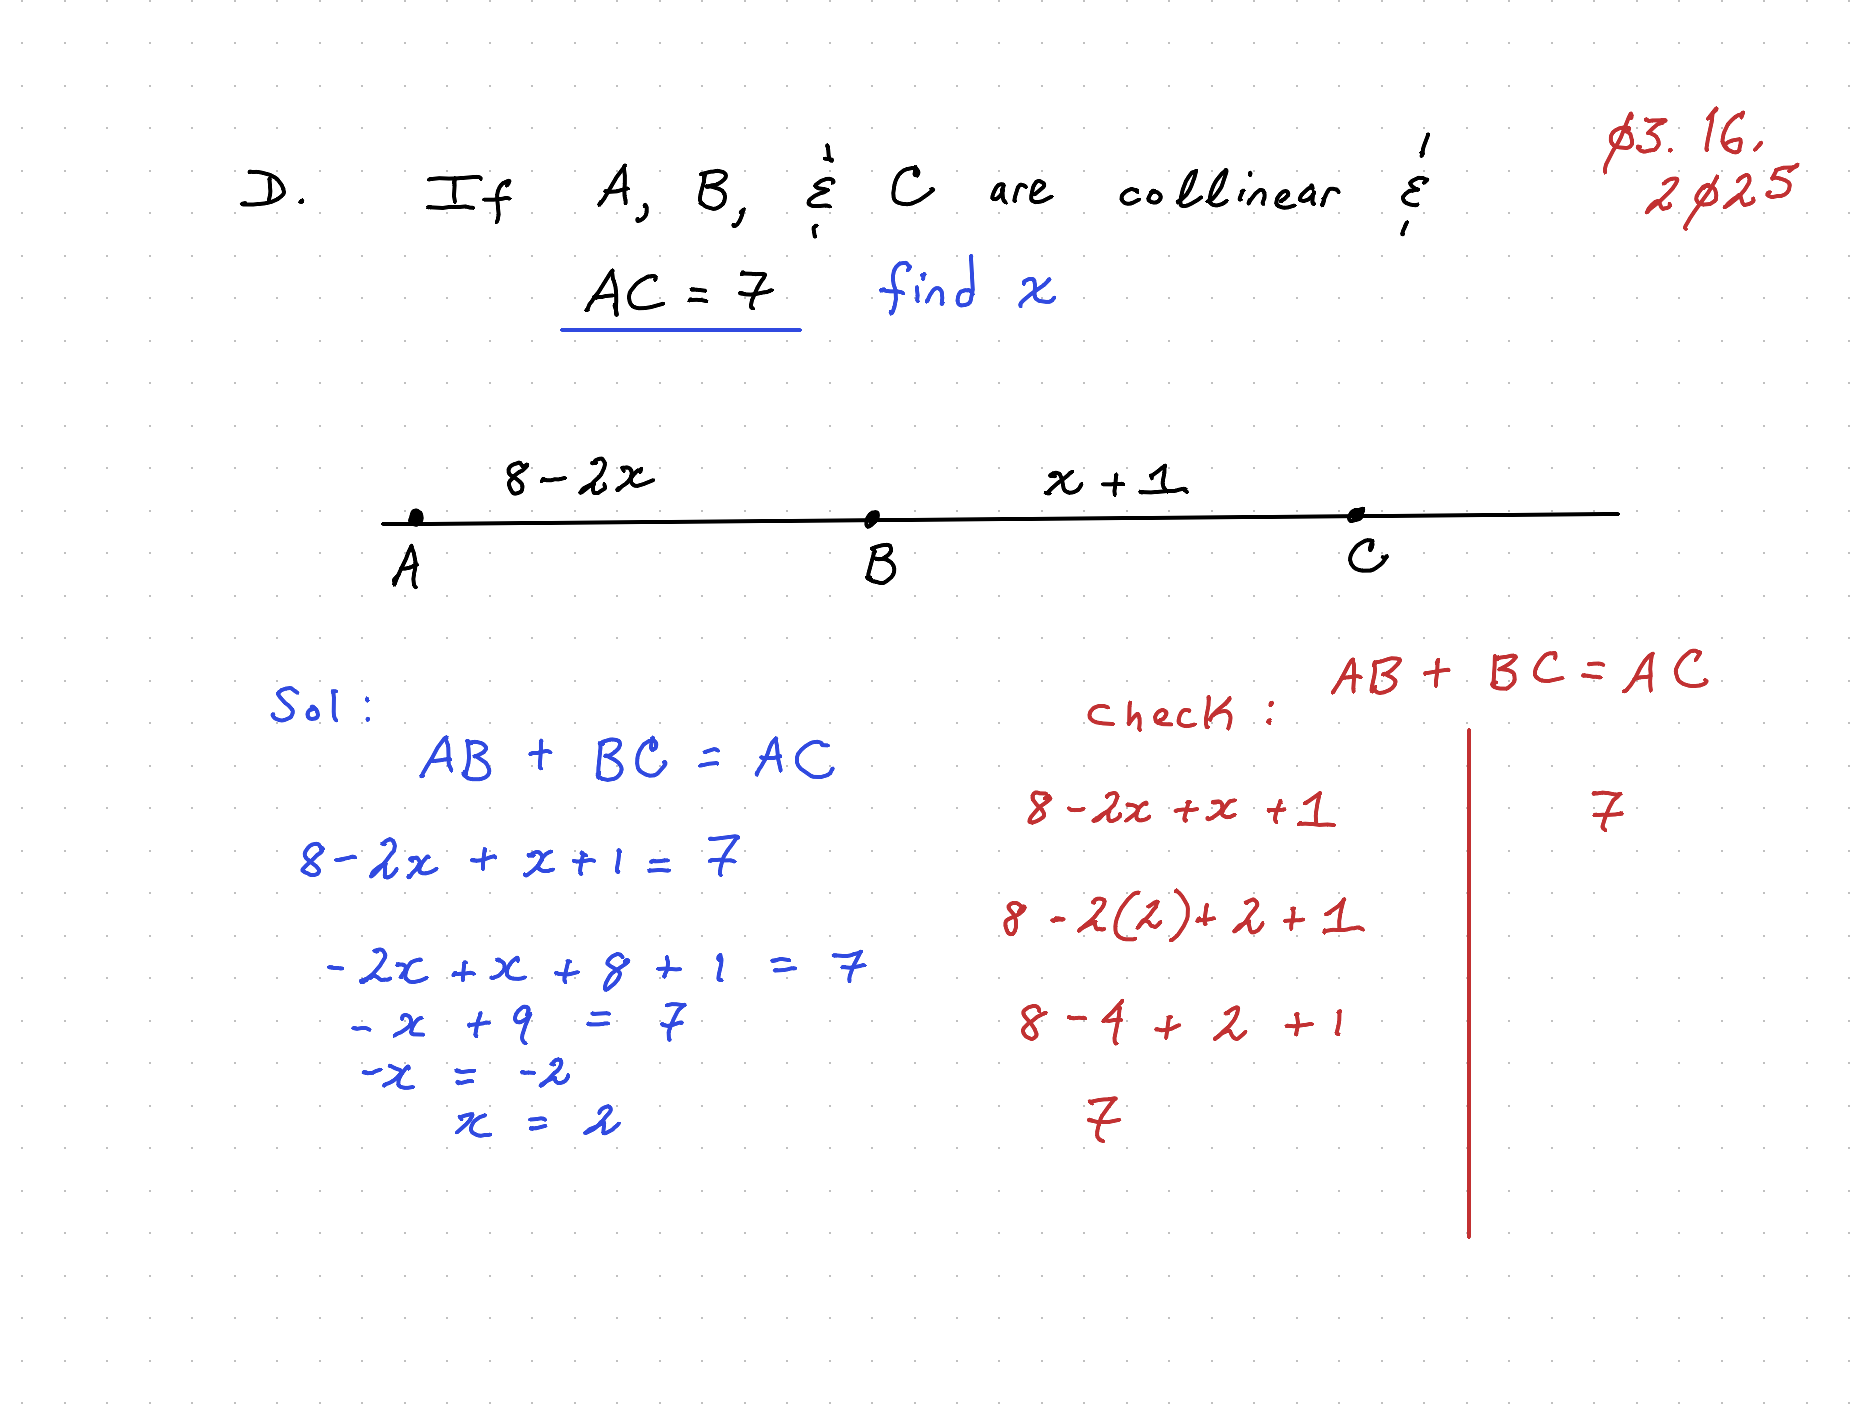 D. If A, B, & C are collinear &
AC = 7 find x
ø3. 16.
2ø25
8 - 2x x + 1
A B C
Sol:
AB + BC = AC
8 - 2x + x + 1 = 7
-2x + x + 8 + 1 = 7
-x + 9 = 7
-x = -2
x = 2
check: AB + BC = AC
8 - 2x + x + 1 7
8 - 2(2) + 2 + 1
8 - 4 + 2 + 1
7